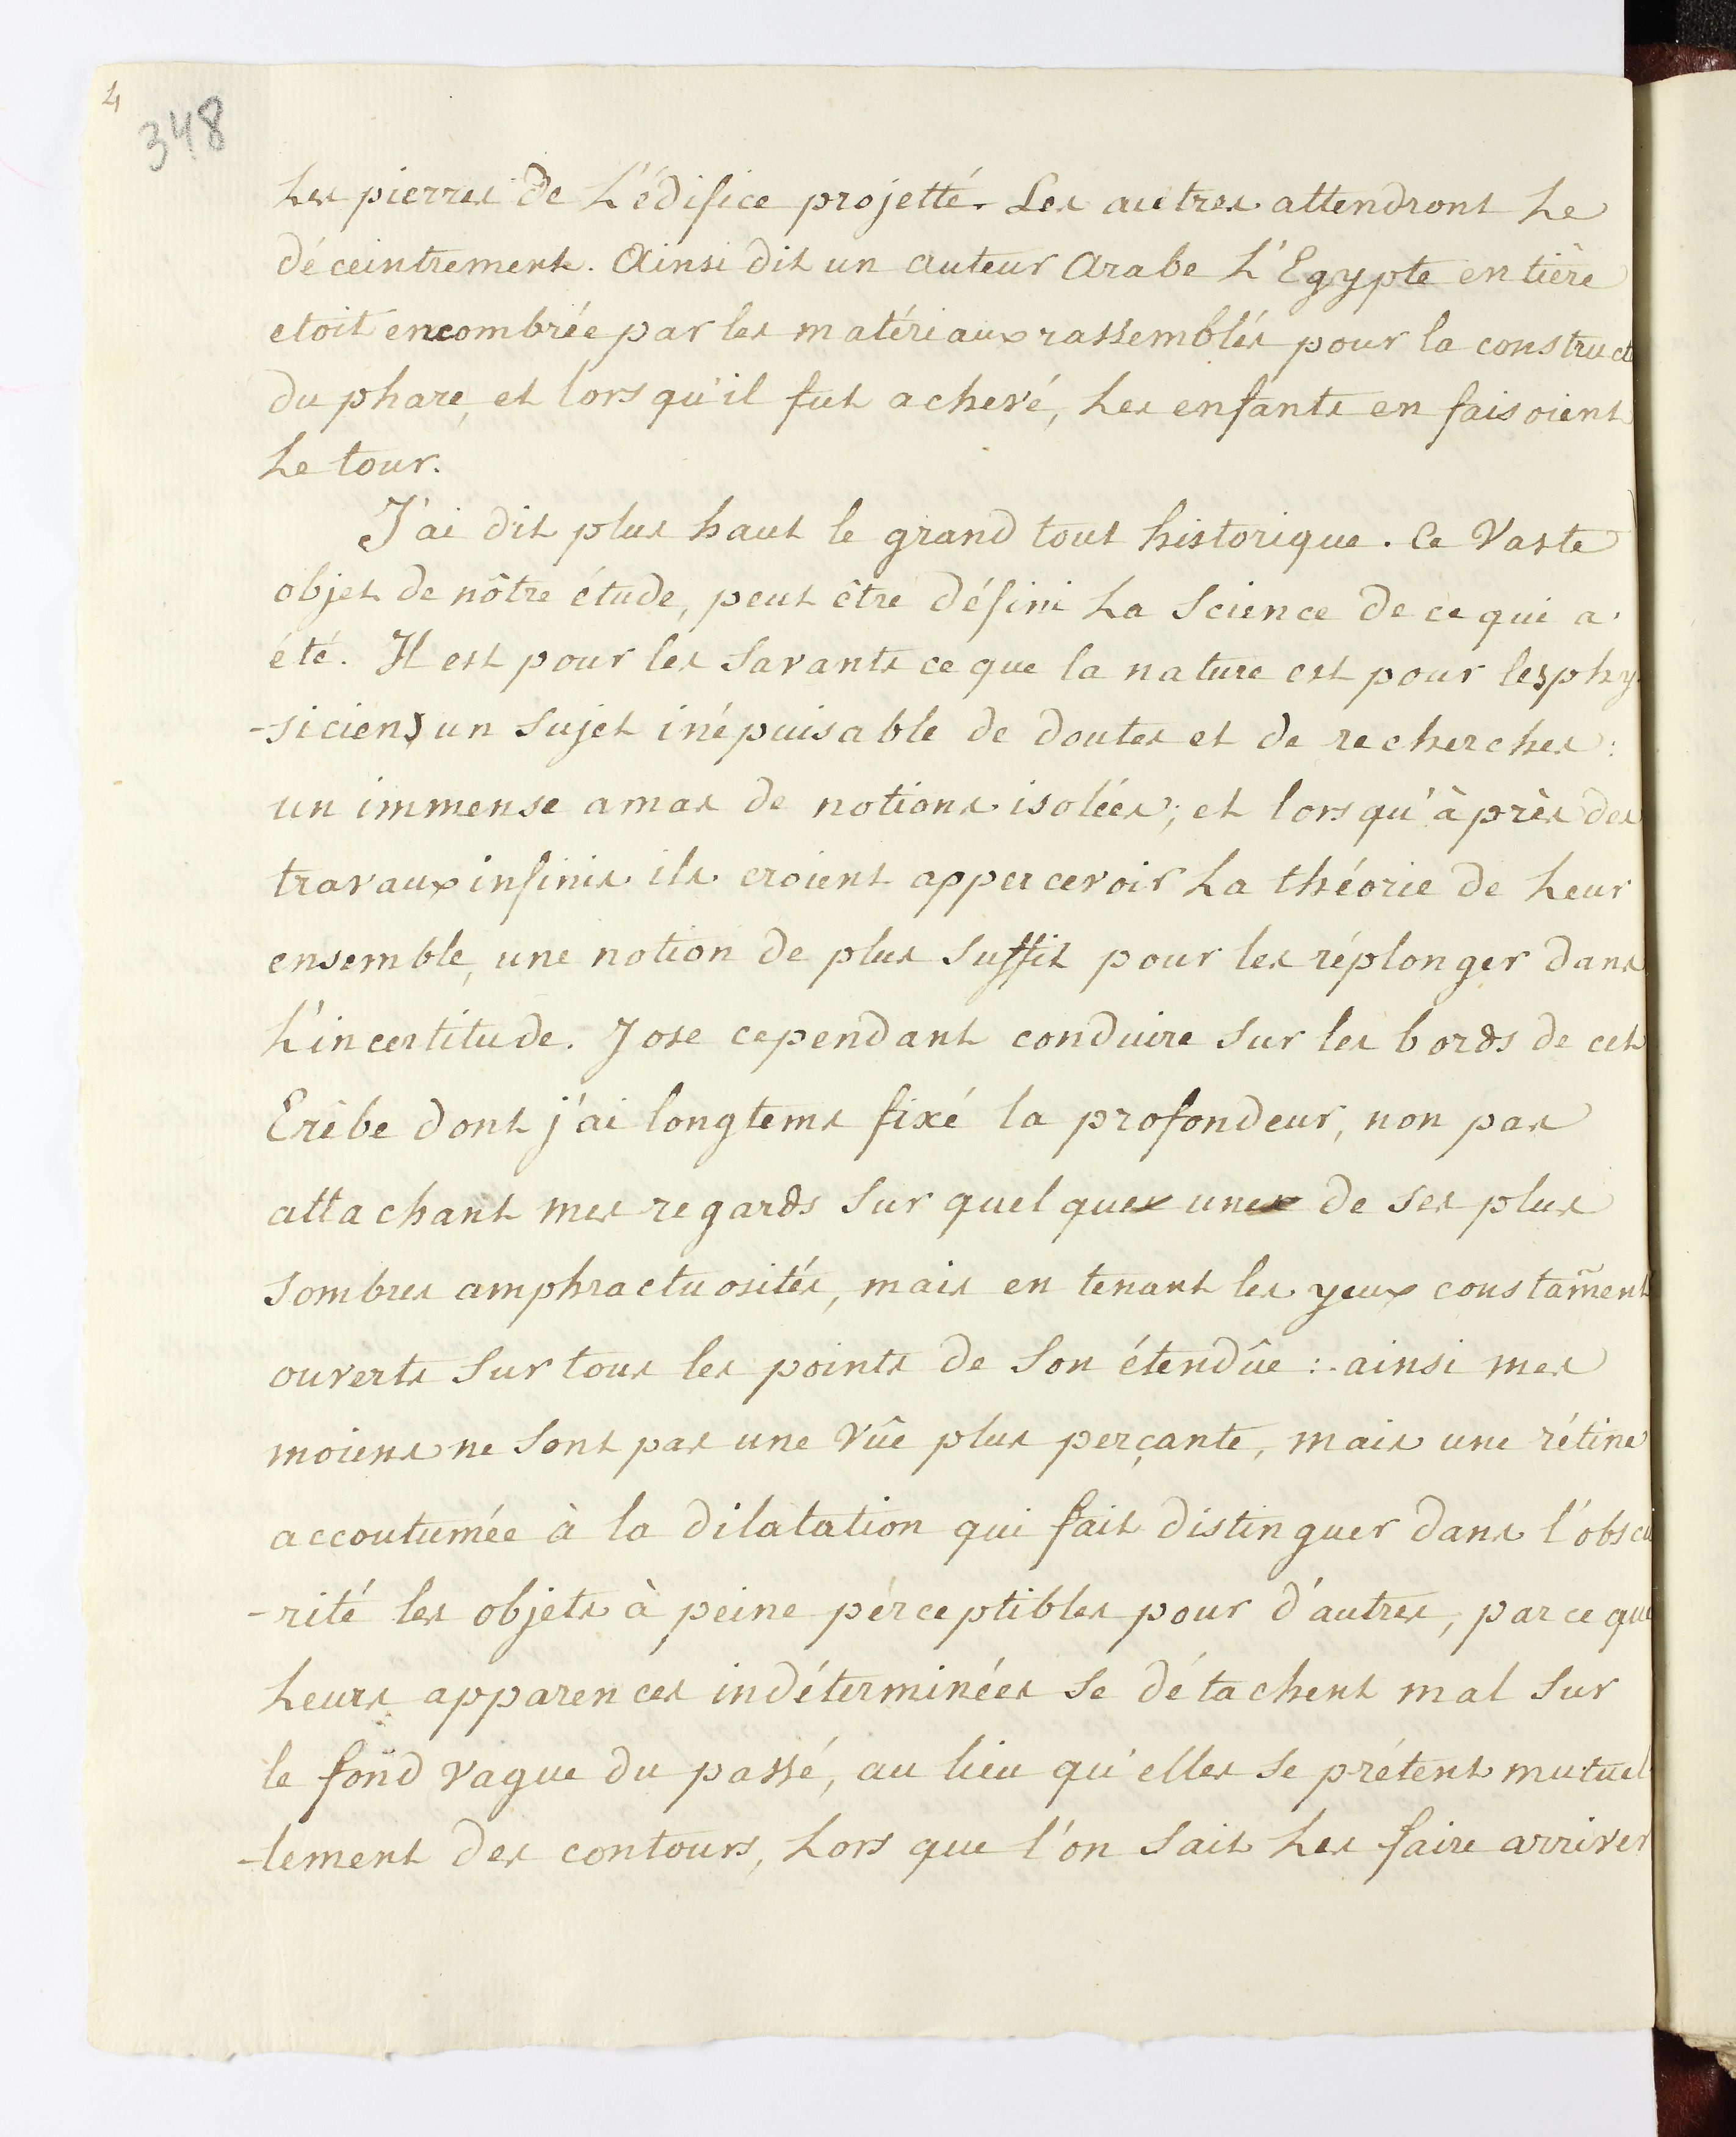 4
348
les pierres de L'édifice projetté. Les autres attendront Le
déceintrement. Ainsi dit un auteur Arabe L'Egypte entière
etoit encombrée par les matériaux rassemblés pour la construct
du phare, et lorsqu'il fut achevé, Les enfants en faisoient
Le tour.
J'ai dit plus haut le grand tout historique. Ce Vaste
objet de nôtre étude, peut être défini La Science de ce qui a
été. Il est pour les Savants ce que la nature est pour les phy
-siciens un Sujet inépuisable de doutes et de recherches:
un immense amas de notions isolées; et lorsqu'àprès des
travaux infinis ils croient appercevoir La théorie de Leur
ensemble, une notion de plus Suffit pour les réplonger dans
L'incertitude. J'ose cependant conduire Sur les bords de cet
Erèbe dont j'ai longtems fixé la profondeur, non pas
attachant mes regards Sur quelques unes de ses plus
Sombres amphractuosités, mais en tenant les yeux constam̃ent
ouverts Sur tous les points de Son étendûe : ainsi mes
moiens ne Sont pas une Vûe plus perçante, mais une rétine
accoutumée à la dilatation qui fait distinguer dans l'obscu
-rité les objets à peine pérceptibles pour d'autres, parce que
Leurs apparences indéterminées Se détachent mal Sur
le fond vague du passé, au lieu qu'elles Se prétent mutuel
-lement des contours, Lors que l'on Sait Les faire arriver